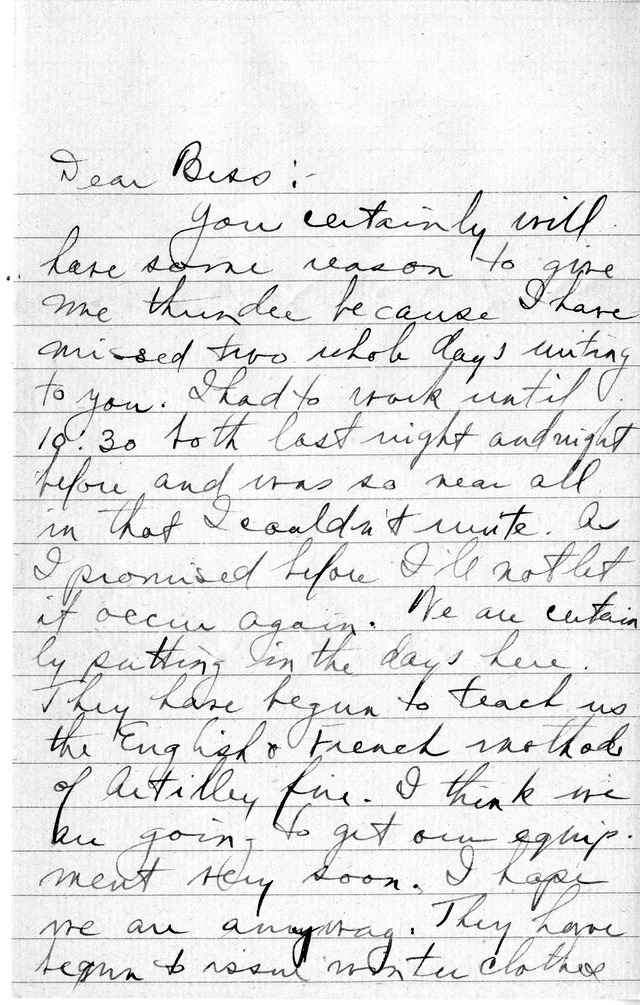 Dear Bess:-
You certainly will
have some reason to give
me thunder because I have
missed two whole days writing
to you. I had to work until
10:30 both last night and night
before and was so near all
in that I couldn't write. As
I promised before I'll not let
it occur again. We are certain
ly putting in the days here.
They have begun to teach us
the English & French methods
of Artilley fire. I think we
are going to get our equip-
ment very soon. I hope
we are anyway. They have
begun to issue winter clothes